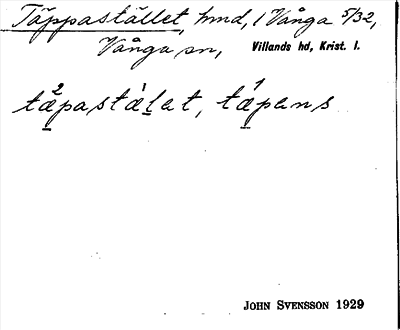 Täppastället, hmd, 1 Vånga 5/32,
Vånga sn, Villands hd, Krist. l.
tä̱²pastä́ḻet, tä̱́¹pens
JOHN SVENSSON 1929